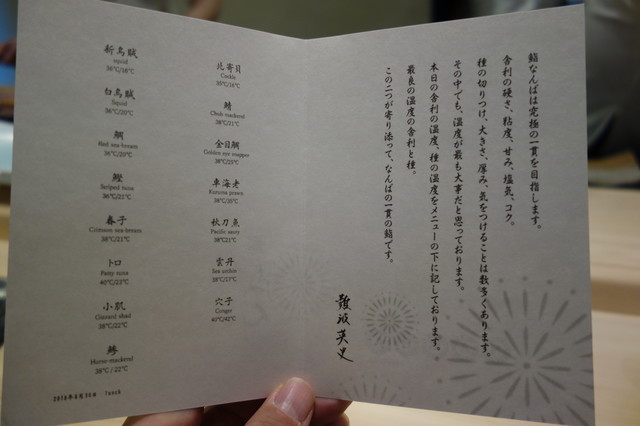 新烏賊
squid
36℃/38℃
白烏賊
Squid
36℃/25℃
鯛
Red sea bream
36℃/20℃
鰹
Striped tuna
36℃/21℃
春子
Crimson sea bream
38℃/21℃
トロ
Fatty tuna
40℃/23℃
小肌
Gizzard shad
38℃/22℃
鯵
Horse-mackerel
38℃ / 22℃
北寄貝
Cockle
38℃/16℃
鯖
Chub mackerel
38℃/21℃
金目鯛
Golden eye snapper
38℃/25℃
車海老
Kuruma prawn
38℃/35℃
秋刀魚
Pacific saury
38℃21℃
雲丹
Sea urchin
38℃/17℃
穴子
Conger
40℃/42℃
lunch
鮨なんばは究極の一貫を目指します。
舎利の硬さ、粘度、甘み、塩気、コク。
種の切りつけ、大きさ、厚み、気をつけることは数多くあります。
その中でも、温度が最も大事だと思っております。
本日の舎利の温度、種の温度をメニューの下に記しております。
最良の温度の舎利と種。
この二つが寄り添って、なんばの一貫の鮨です。
難波英史